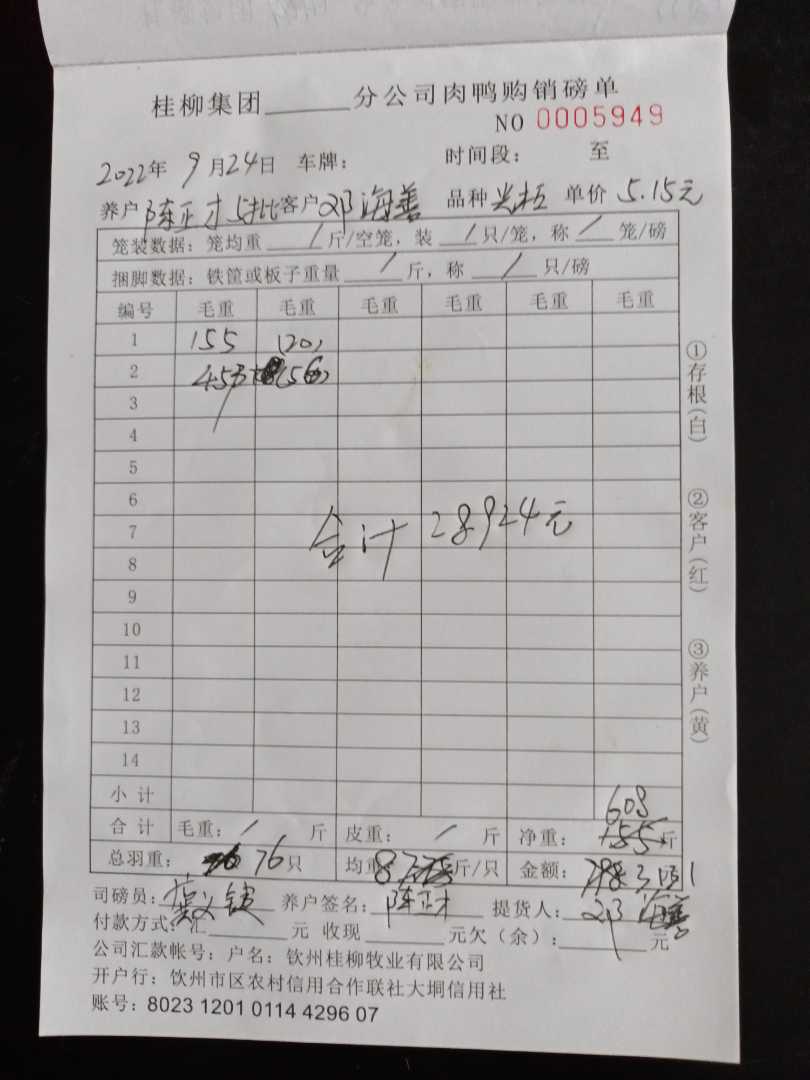 桂柳集团______分公司肉鸭购销磅单
NO 0005949
2022年 9月24日 车牌: 时间段: 至
养户 陈正才 5批 客户 邓海善 品种 单价 5.15元
笼装数据: 笼均重 / 斤/空笼, 装 / 只/笼, 称 / 笼/磅
捆脚数据: 铁筐或板子重量 / 斤, 称 / 只/磅
编号 毛重 毛重 毛重 毛重 毛重 毛重
1 155 (20)
2 453 (56)
3
4
5
6
合计 28924元
7
8
9
10
11
12
13
14
小计
608
合计 毛重: / 斤 皮重: / 斤 净重: 斤
总羽重: 76只 均重 斤/只 金额:
司磅员: 养户签名: 陈正才 提货人: 邓海善
付款方式: 汇______元 收现______元欠(余):______元
公司汇款帐号: 户名: 钦州桂柳牧业有限公司
开户行: 钦州市区农村信用合作联社大垌信用社
账号: 8023 1201 0114 4296 07
①存根(白)
②客户(红)
③养户(黄)